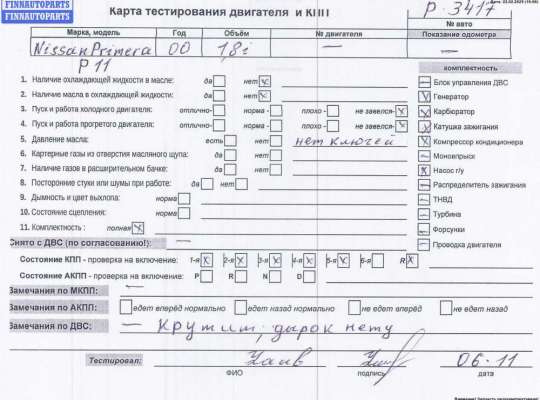 FINNAUTOPARTS
FINNAUTOPARTS
Карта тестирования двигателя и КПП
р-3417
№ авто
Марка, модель Год Объём № двигателя Показание одометра
Nissan Primera 00 1,8i — —
P11
комплектность
1. Наличие охлаждающей жидкости в масле: да нет
2. Наличие масла в охлаждающей жидкости: да нет
3. Пуск и работа холодного двигателя: отлично- норма - плохо - не завелся-
4. Пуск и работа прогретого двигателя: отлично- норма - плохо - не завелся-
5. Давление масла: есть нет нет ключей
6. Картерные газы из отверстия масляного щупа: да нет
7. Наличие газов в расширительном бачке: да нет
8. Посторонние стуки или шумы при работе: да нет
9. Дымность и цвет выхлопа: норма
10. Состояние сцепления: норма
11. Комплектность : полная
Блок управления ДВС
Генератор
Карбюратор
Катушка зажигания
Компрессор кондиционера
Моновпрыск
Насос г/у
Распределитель зажигания
ТНВД
Турбина
Форсунки
Проводка двигателя
Снято с ДВС (по согласованию!): —
Состояние КПП - проверка на включение: 1-я 2-я 3-я 4-я 5-я 6-я R
Состояние АКПП - проверка на включение: P R N D
Замечания по МКПП: —
Замечания по АКПП: едет вперёд нормально едет назад нормально не едет вперёд не едет назад
Замечания по ДВС: — Крутит, дырок нету
Тестировал: 06.11
ФИО подпись дата